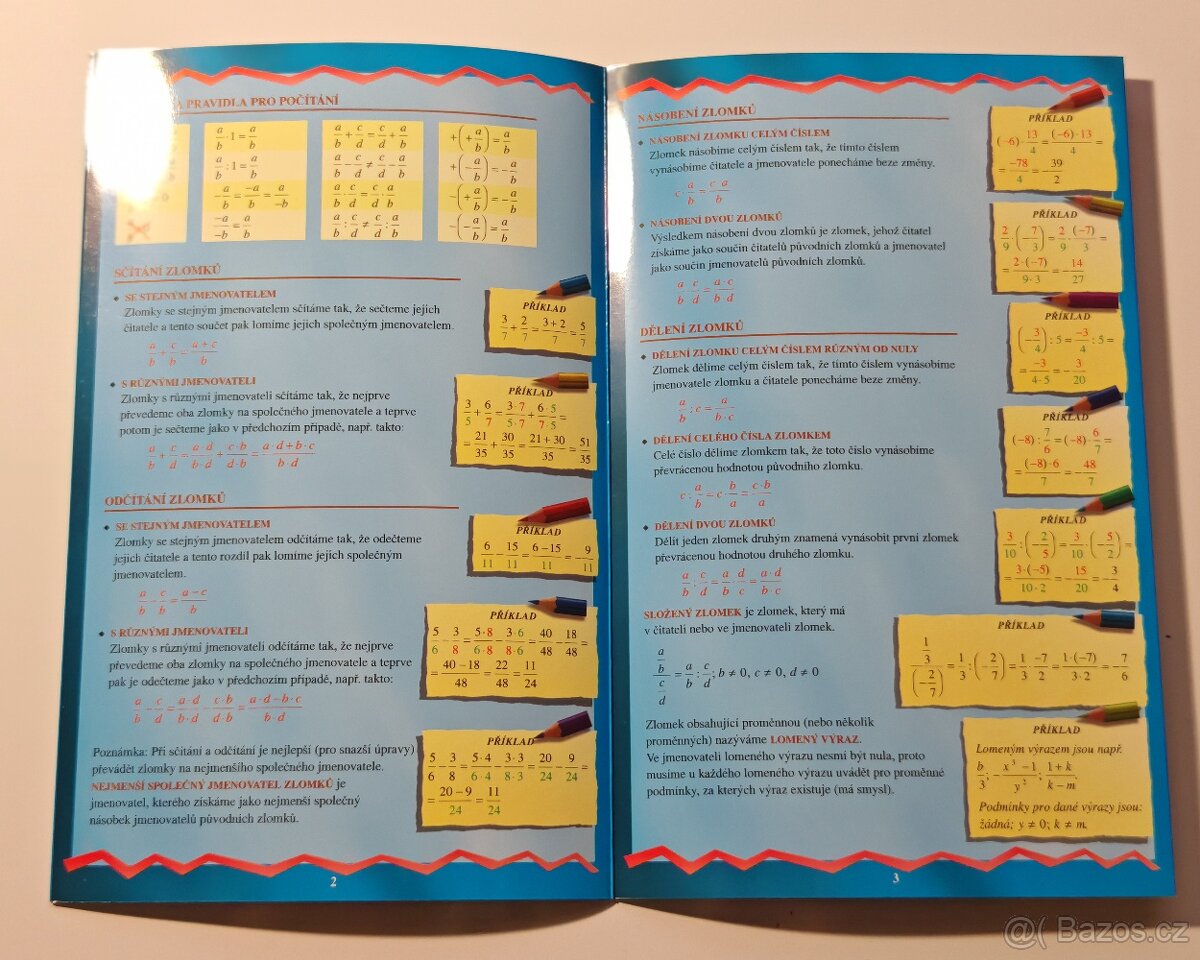 PRAVIDLA PRO POČÍTÁNÍ
a/b · 1 = a/b
a/b : 1 = a/b
-a/b = -a/b = a/-b
-a/-b = a/b
a/b + c/d = c/d + a/b
a/b - c/d ≠ c/d - a/b
a/b · c/d = c/d · a/b
a/b : c/d ≠ c/d : a/b
+(+a/b) = a/b
+(-a/b) = -a/b
-(+a/b) = -a/b
-(-a/b) = a/b
SČÍTÁNÍ ZLOMKŮ
SE STEJNÝM JMENOVATELEM
Zlomky se stejným jmenovatelem sčítáme tak, že sečteme jejich
čitatele a tento součet pak lomíme jejich společným jmenovatelem.
a/b + c/b = a+c/b
PŘÍKLAD
3/7 + 2/7 = 3+2/7 = 5/7
S RŮZNÝMI JMENOVATELI
Zlomky s různými jmenovateli sčítáme tak, že nejprve
převedeme oba zlomky na společného jmenovatele a teprve
potom je sečteme jako v předchozím případě, např. takto:
a/b + c/d = a·d/b·d + c·b/d·b = a·d+b·c/b·d
PŘÍKLAD
3/5 + 6/7 = 3·7/5·7 + 6·5/7·5 =
= 21/35 + 30/35 = 21+30/35 = 51/35
ODČÍTÁNÍ ZLOMKŮ
SE STEJNÝM JMENOVATELEM
Zlomky se stejným jmenovatelem odčítáme tak, že odečteme
jejich čitatele a tento rozdíl pak lomíme jejich společným
jmenovatelem.
a/b - c/b = a-c/b
PŘÍKLAD
6/11 - 15/11 = 6-15/11 = -9/11
S RŮZNÝMI JMENOVATELI
Zlomky s různými jmenovateli odčítáme tak, že nejprve
převedeme oba zlomky na společného jmenovatele a teprve
pak je odečteme jako v předchozím případě, např. takto:
a/b - c/d = a·d/b·d - c·b/d·b = a·d-b·c/b·d
PŘÍKLAD
5/6 - 3/8 = 5·8/6·8 - 3·6/8·6 = 40/48 - 18/48 =
= 40-18/48 = 22/48 = 11/24
Poznámka: Při sčítání a odčítání je nejlepší (pro snazší úpravy)
převádět zlomky na nejmenšího společného jmenovatele.
NEJMENŠÍ SPOLEČNÝ JMENOVATEL ZLOMKŮ je
jmenovatel, kterého získáme jako nejmenší společný
násobek jmenovatelů původních zlomků.
PŘÍKLAD
5/6 - 3/8 = 5·4/6·4 - 3·3/8·3 = 20/24 - 9/24 =
= 20-9/24 = 11/24
2
NÁSOBENÍ ZLOMKŮ
NÁSOBENÍ ZLOMKU CELÝM ČÍSLEM
Zlomek násobíme celým číslem tak, že tímto číslem
vynásobíme čitatele a jmenovatele ponecháme beze změny.
c · a/b = c·a/b
PŘÍKLAD
(-6) · 13/4 = (-6)·13/4 =
= -78/4 = -39/2
NÁSOBENÍ DVOU ZLOMKŮ
Výsledkem násobení dvou zlomků je zlomek, jehož čitatel
získáme jako součin čitatelů původních zlomků a jmenovatel
jako součin jmenovatelů původních zlomků.
a/b · c/d = a·c/b·d
PŘÍKLAD
2/9 · (-7/3) = 2/9 · (-7)/3 =
= 2·(-7)/9·3 = -14/27
DĚLENÍ ZLOMKŮ
DĚLENÍ ZLOMKU CELÝM ČÍSLEM RŮZNÝM OD NULY
Zlomek dělíme celým číslem tak, že tímto číslem vynásobíme
jmenovatele zlomku a čitatele ponecháme beze změny.
a/b : c = a/b·c
PŘÍKLAD
(-3/4) : 5 = -3/4 : 5 =
= -3/4·5 = -3/20
DĚLENÍ CELÉHO ČÍSLA ZLOMKEM
Celé číslo dělíme zlomkem tak, že toto číslo vynásobíme
převrácenou hodnotou původního zlomku.
c : a/b = c · b/a = c·b/a
PŘÍKLAD
(-8) : 7/6 = (-8) · 6/7 =
= (-8)·6/7 = -48/7
DĚLENÍ DVOU ZLOMKŮ
Dělit jeden zlomek druhým znamená vynásobit první zlomek
převrácenou hodnotou druhého zlomku.
a/b : c/d = a/b · d/c = a·d/b·c
PŘÍKLAD
3/10 : (-2/5) = 3/10 · (-5/2) =
= 3·(-5)/10·2 = -15/20 = -3/4
SLOŽENÝ ZLOMEK je zlomek, který má
v čitateli nebo ve jmenovateli zlomek.
a/b / c/d = a/b : c/d ; b ≠ 0, c ≠ 0, d ≠ 0
PŘÍKLAD
1/3 / (-2/7) = 1/3 : (-2/7) = 1/3 · -7/2 = 1·(-7)/3·2 = -7/6
Zlomek obsahující proměnnou (nebo několik
proměnných) nazýváme LOMENÝ VÝRAZ.
Ve jmenovateli lomeného výrazu nesmí být nula, proto
musíme u každého lomeného výrazu uvádět pro proměnné
podmínky, za kterých výraz existuje (má smysl).
PŘÍKLAD
Lomeným výrazem jsou např.
b/3; -x³-1/y²; 1+k/k-m.
Podmínky pro dané výrazy jsou:
žádná; y ≠ 0; k ≠ m.
3
@( Bazos.cz